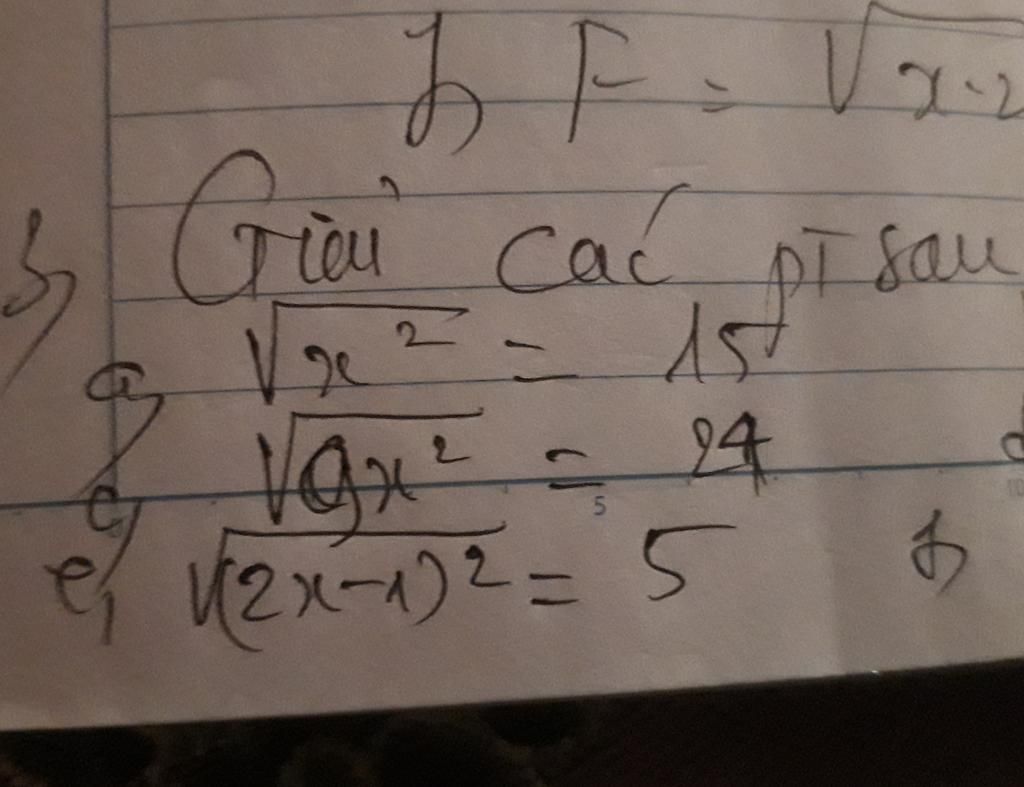 h, F = √x-2
3, Giải các pt sau
a, √x² = 15
c, √9x² = 24
e, √(2x-1)² = 5 f,
5
10